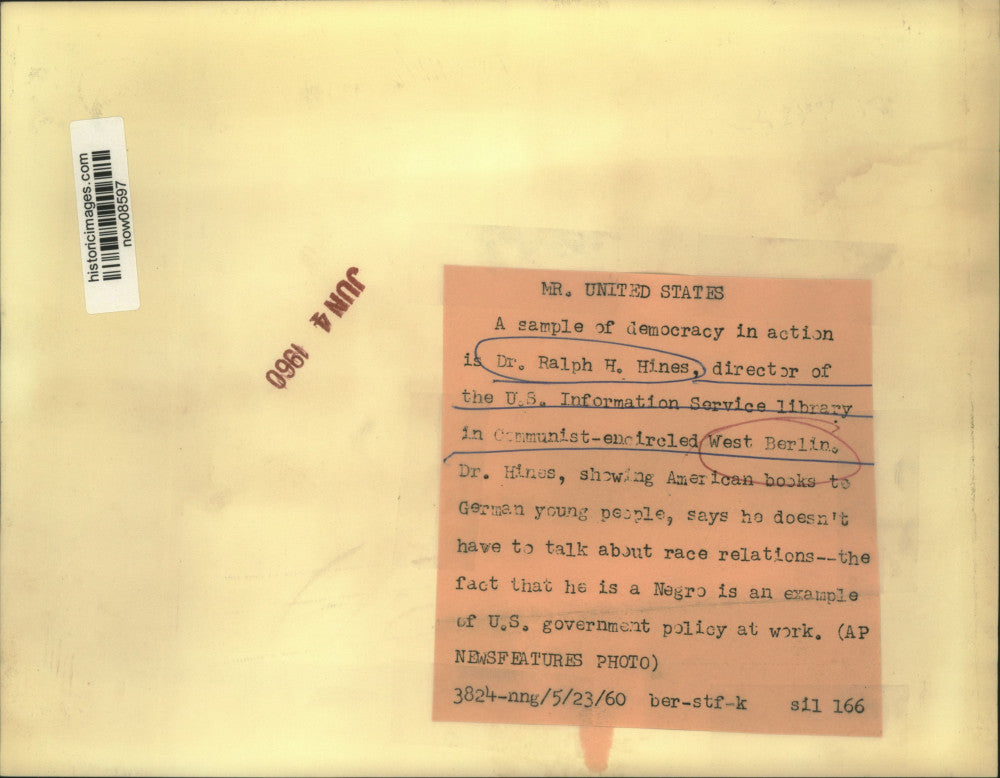 historicimages.com
now08597
JUN 4 1960
MR. UNITED STATES
A sample of democracy in action
is Dr. Ralph H. Hines, director of
the U.S. Information Service library
in Communist-encircled West Berlin.
Dr. Hines, showing American books to
German young people, says he doesn't
have to talk about race relations--the
fact that he is a Negro is an example
of U.S. government policy at work. (AP
NEWSFEATURES PHOTO)
3824-nng/5/23/60 ber-stf-k sil 166